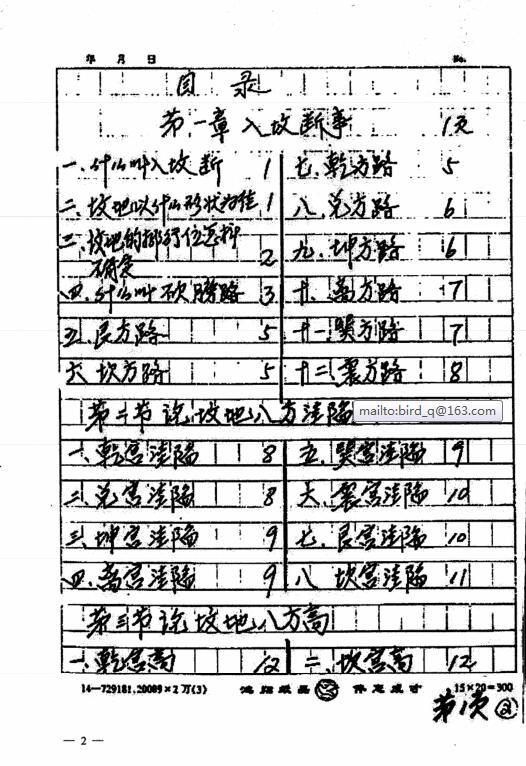 年 月 日 No.
目 录
第一章 入坟断事 1页
一、什么叫入坟断 1
七、乾方路 5
二、坟地以什么形状为佳 1
八、兑方路 6
三、坟地的排行位怎样确定 2
九、坤方路 6
四、什么叫砍膀路 3
十、离方路 7
五、艮方路 5
十一、巽方路 7
六、坎方路 5
十二、震方路 8
第二节 说坟地八方洼陷
mailto:bird_q@163.com
一、乾宫洼陷 8
五、巽宫洼陷 9
二、兑宫洼陷 8
六、震宫洼陷 10
三、坤宫洼陷 9
七、艮宫洼陷 10
四、离宫洼陷 9
八、坎宫洼陷 11
第三节 说坟地八方高
一、乾宫高 12
二、坎宫高 12
14—729181.20089×2万(3)
15×20=300
第1页 ②
— 2 —